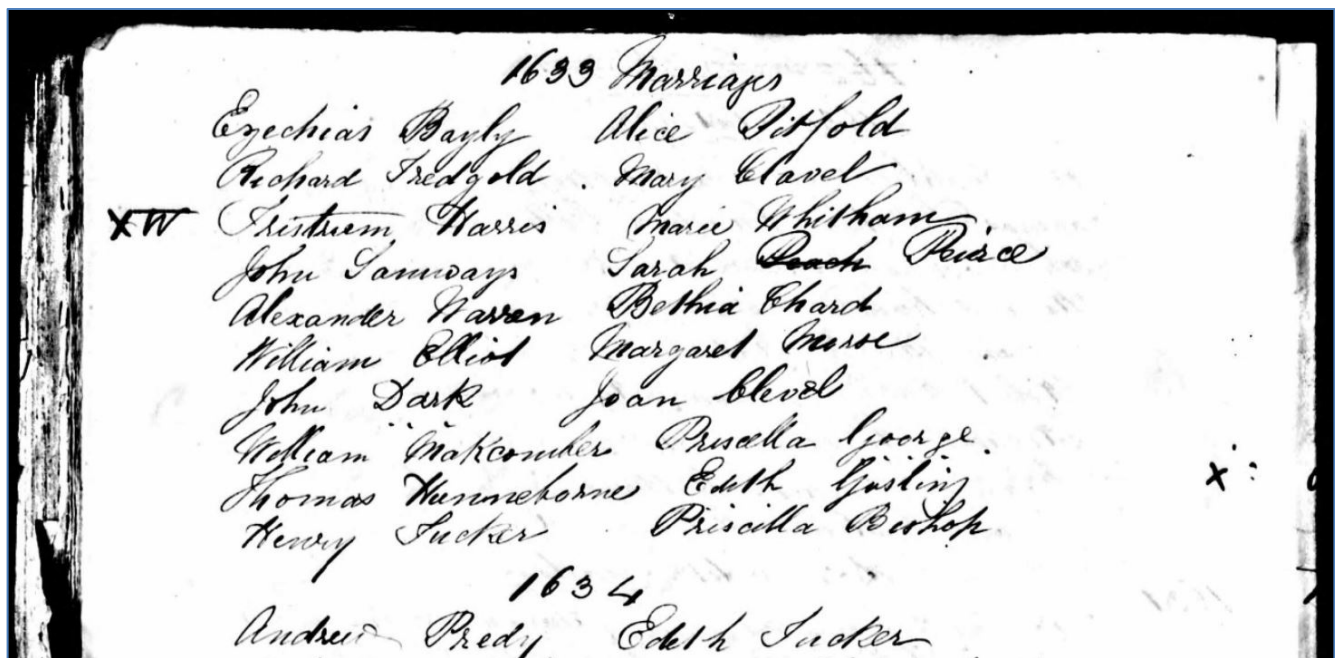 1633 Marriages
Ezechias Bayly Alice Pitfold
Richard Tredgold . Mary Clavel
XW Tristrum Harris Marie Whitham
John Samways Sarah Roach Peirce
Alexander Warren Bethia Chard
William Elliot Margaret Morse
John Dark Joan Clevel
William Makcomber Priscilla George.
Thomas Hunneborne Edith Gosling X
Henry Tucker Priscilla Bishop
1634
Andrew Predy Edith Tucker